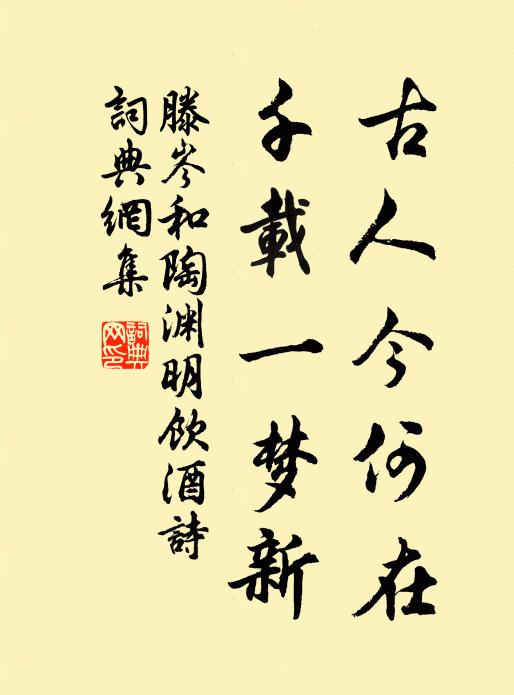 古人今何在
千載一梦新
滕岑和陶渊明飲酒詩
詞典網集
詞典網印